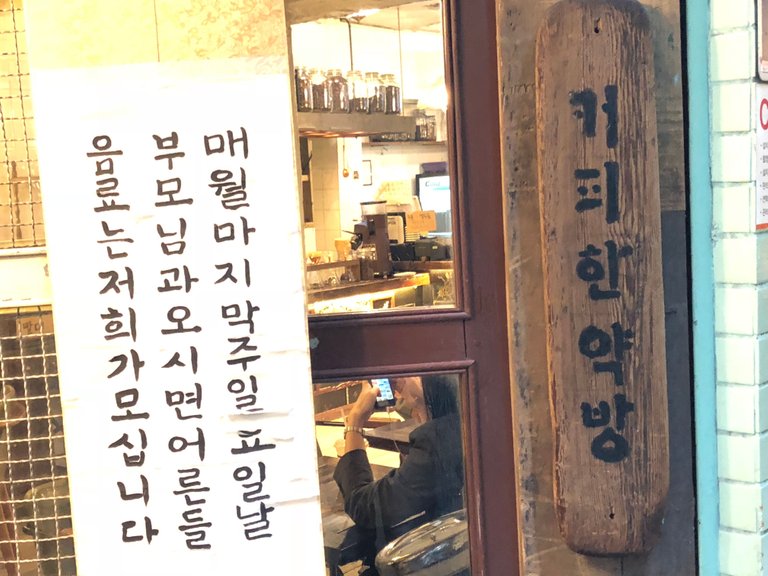 매월마지막주일요일날
부모님과오시면어른들
음료는저희가모십니다
커피한약방